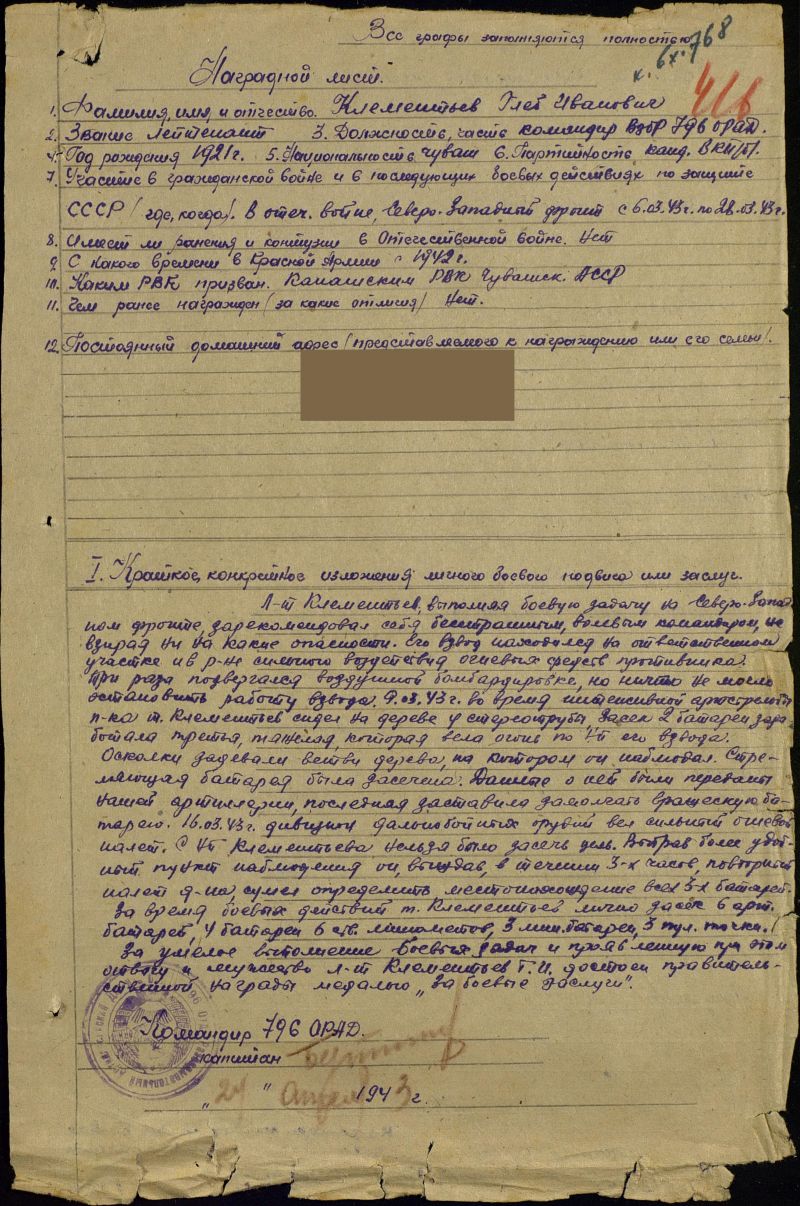 Все графы заполняются полностью
к. 6х. 768
Наградной лист.
416
1. Фамилия, имя и отчество. Клементьев Глеб Иванович
2. Звание Лейтенант 3. Должность, часть командир ВЗОР 796 ОРАД.
4. Год рождения 1921г. 5. Национальность чуваш 6. Партийность канд. ВКП/б/.
7. Участие в гражданской войне и в последующих боевых действиях по защите
СССР / где, когда/. В отеч. войне, Северо-Западный фронт с 6.03.43г. по 28.03.43г.
8. Имеет ли ранения и контузии в Отечественной войне. Нет
9. С какого времени в Красной Армии с 1942г.
10. Каким РВК призван. Канашским РВК Чувашск. АССР
11. Чем ранее награжден / за какие отличия/ Нет.
12. Постоянный домашний адрес / представляемого к награждению или его семьи/.
I. Краткое, конкретное изложения личного боевого подвига или заслуг.
Л-т Клементьев, выполняя боевую задачу на Северо-Запад
ном фронте, зарекомендовал себя бесстрашным, волевым командиром, не
взирая ни на какие опасности. Его взвод находился на ответственном
участке и в р-не сильного воздействия огневых средств противника.
Три раза подвергался воздушной бомбардировке, но ничто не могло
остановить работу взвода. 9.03.43г. во время интенсивной артстрельбы
п-ка т. Клементьев сидел на дереве у стереотрубы. Засек 2 батареи зара-
ботала третья, тяжелая, которая вела огонь по НП его взвода.
Осколки задевали ветви дерева, на котором он наблюдал. Стре-
ляющая батарея была засечена. Данные о ней были переданы
нашей артиллерии, последняя заставила замолчать вражескую ба-
тарею. 16.03.43г. дивизион дальнобойных орудий вел сильный огневой
налет. С НП Клементьева нельзя было засечь цель. Выбрав более удоб-
ный пункт наблюдения он, выждав, в течении 3-х часов, повторный
налет д-на, сумел определить местонахождение всех 3-х батарей.
За время боевых действий т. Клементьев лично засек 6 арт.
батарей, 4 батареи 6 ств. минометов, 3 мин. батареи, 3 пул. точки.
За умелое выполнение боевых задач и проявленную при этом
отвагу и мужество л-т Клементьев Г.И. достоен правитель-
ственной награды медалью „За боевые заслуги".
Командир 796 ОРАД.
капитан
„24" Апреля 1943г.